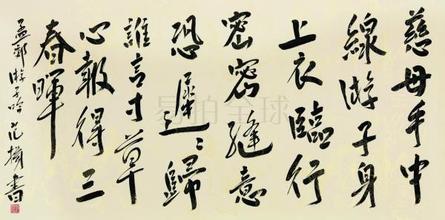 慈母手中
線游子身
上衣臨行
密密縫意
恐遲〻歸
誰言寸草
心報得三
春暉
孟郊游子吟 范揚書
易拍全球